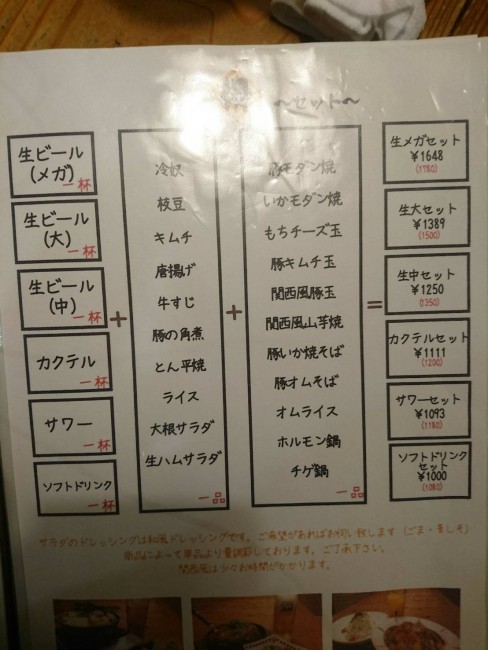 ～セット～
生ビール
(メガ)
一杯
生ビール
(大)
一杯
生ビール
(中)
一杯
カクテル
一杯
サワー
一杯
ソフトドリンク
一杯
+
冷奴
枝豆
キムチ
唐揚げ
牛すじ
豚の角煮
とん平焼
ライス
大根サラダ
生ハムサラダ
一品
+
豚モダン焼
いかモダン焼
もちチーズ玉
豚キムチ玉
関西風豚玉
関西風山芋焼
豚いか焼そば
豚オムそば
オムライス
ホルモン鍋
チゲ鍋
一品
=
生メガセット
¥1648
(1780)
生大セット
¥1389
(1500)
生中セット
¥1250
(1350)
カクテルセット
¥1111
(1200)
サワーセット
¥1093
(1180)
ソフトドリンク
セット
¥1000
(1080)
サラダのドレッシングは和風ドレッシングです。ご希望があればお伺い致します（ごま・青しそ）
商品によって単品より量調節しております。ご了承下さい。
関西風は少々お時間がかかります。